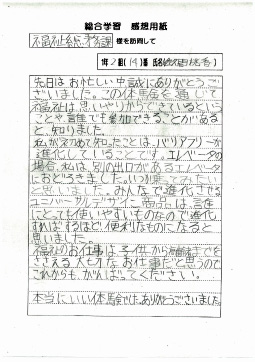 総合学習 感想用紙
福祉総務課 様を訪問して
1年2組(19)番 氏名
先日はお忙しい中誠にありがとうご
ざいました。この体験を通じて
福祉は思いやりからできているという
ことや、誰でも参加できることがある
と、知りました。
私が初めて知ったことは、バリアフリーが
進化していることです。エレベーターの
場合、私は、別の出口があるエレベーター
におどろきました。いつか乗ってみたい
と思いました。みんなで進化させる
ユニバーサルデザイン商品は、誰
にとっても使いやすいものなので進化
すればするほど便利なものになると
思いました。
福祉のお仕事は、子供から高齢者までを
ささえる大切なお仕事だと思うので
これからも、がんばってください。
本当にいい体験でした。ありがとうございました。